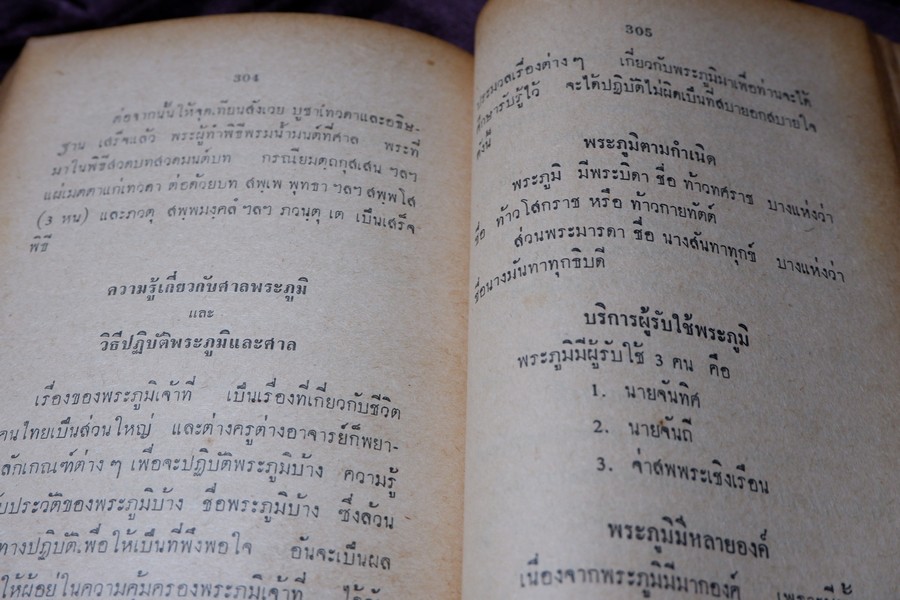 304
ต่อจากนั้นให้จุดเทียนสังเวย บูชาเทวดาและอธิษ-
ฐาน เสร็จแล้ว พระผู้ทำพิธีพรมน้ำมนต์ที่ศาล พระที่
มาในพิธีสวดบทสวดมนต์บท กรณียมตฺถกุสเลน ฯลฯ
แผ่เมตตาแก่เทวดา ต่อด้วยบท สพฺเพ พุทฺธา ฯลฯ สพฺพโส
(3 หน) และภวตุ สพฺพมงฺคลํ ฯลฯ ภวนฺตุ เต เป็นเสร็จ
พิธี
ความรู้เกี่ยวกับศาลพระภูมิ
และ
วิธีปฏิบัติพระภูมิและศาล
เรื่องของพระภูมิเจ้าที่ เป็นเรื่องที่เกี่ยวกับชีวิต
คนไทยเป็นส่วนใหญ่ และต่างครูต่างอาจารย์ก็พยา-
ลักเกณฑ์ต่างๆ เพื่อจะปฏิบัติพระภูมิบ้าง ความรู้
ประวัติของพระภูมิบ้าง ชื่อพระภูมิบ้าง ซึ่งล้วน
ทางปฏิบัติเพื่อให้เป็นที่พึงพอใจ อันจะเป็นผล
ให้ผู้อยู่ในความคุ้มครองพระภูมิเจ้าที่
305
ประมวลเรื่องต่างๆ เกี่ยวกับพระภูมิมาเพื่อท่านจะได้
ศึกษารับรู้ไว้ จะได้ปฏิบัติไม่ผิดเป็นที่สบายอกสบายใจ
ดังนี้
พระภูมิตามกำเนิด
พระภูมิ มีพระบิดา ชื่อ ท้าวทศราช บางแห่งว่า
ชื่อ ท้าวโสกราช หรือ ท้าวกายทัตต์
ส่วนพระมารดา ชื่อ นางสันทาทุกข์ บางแห่งว่า
ชื่อนางมันทาทุกขิบดี
บริการผู้รับใช้พระภูมิ
พระภูมิมีผู้รับใช้ 3 คน คือ
1. นายจันทิศ
2. นายจันถี
3. จ่าสพพระเชิงเรือน
พระภูมิมีหลายองค์
เนื่องจากพระภูมิมีมากองค์